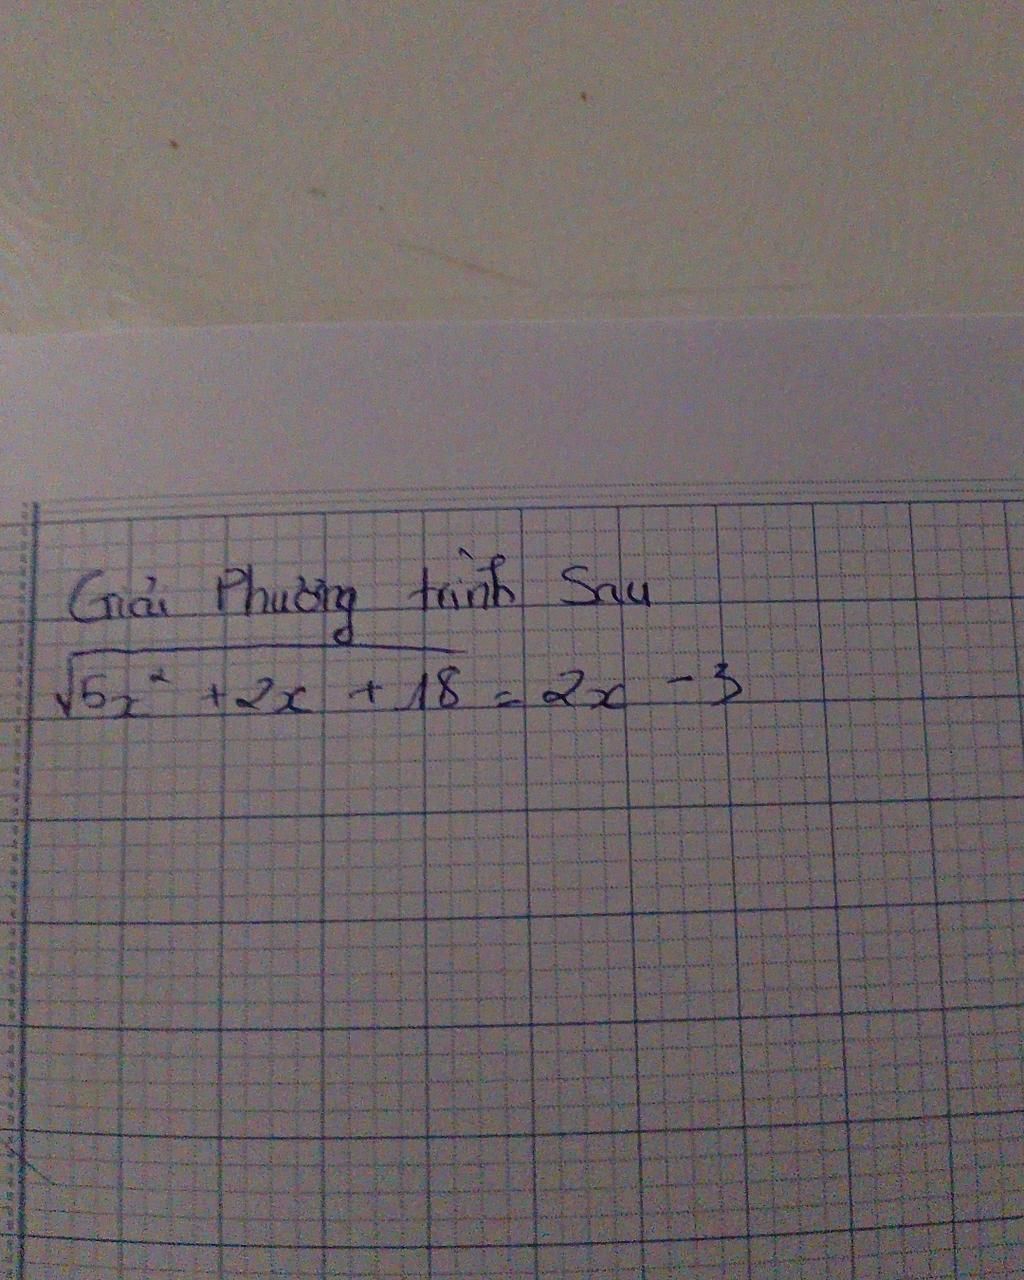 Giải Phương trình Sau
√5x² + 2x + 18 = 2x - 3